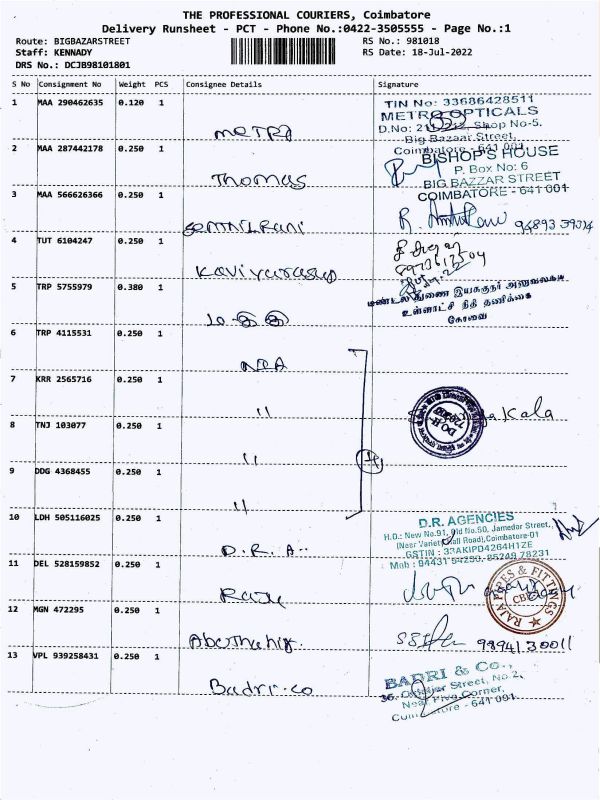 THE PROFESSIONAL COURIERS, Coimbatore
Delivery Runsheet - PCT - Phone No.:0422-3505555 - Page No.:1
Route: BIGBAZARSTREET
Staff: KENNADY
DRS No.: DCJB98101801
RS No.: 981018
RS Date: 18-Jul-2022
S No Consignment No Weight PCS Consignee Details Signature
1 MAA 290462635 0.120 1
METRO
TIN No: 33686428511
METRO OPTICALS
Shop No-5.
Big Bazaar Street,
Coimbatore - 641 001
2 MAA 287442178 0.250 1
Thomas
BISHOP'S HOUSE
P. Box No: 6
BIG BAZZAR STREET
COIMBATORE - 641 001
3 MAA 566626366 0.250 1
4 TUT 6104247 0.250 1
5 TRP 5755979 0.380 1
மண்டல துணை இயக்குநர் அலுவலகம்
உள்ளாட்சி நிதி தணிக்கை
கோவை
6 TRP 4115531 0.250 1
7 KRR 2565716 0.250 1
"
8 TNJ 103077 0.250 1
"
9 DDG 4368455 0.250 1
"
10 LDH 505116025 0.250 1
D.R.A..
D.R. AGENCIES
H.O.: New No.91, Old No.50, Jamedar Street,
(Near Variety Hall Road), Coimbatore-01
GSTIN : 33AKIPD4264H1ZE
Mob : 94431 94250, 85249 78231
11 DEL 528159852 0.250 1
Raju
RAJA PIPES & FITTINGS
CBE
12 MGN 472295 0.250 1
98941.30011
13 VPL 939258431 0.250 1
Badri.co
BADRI & Co.,
Street, No.2,
Near Five Corner,
- 641 001